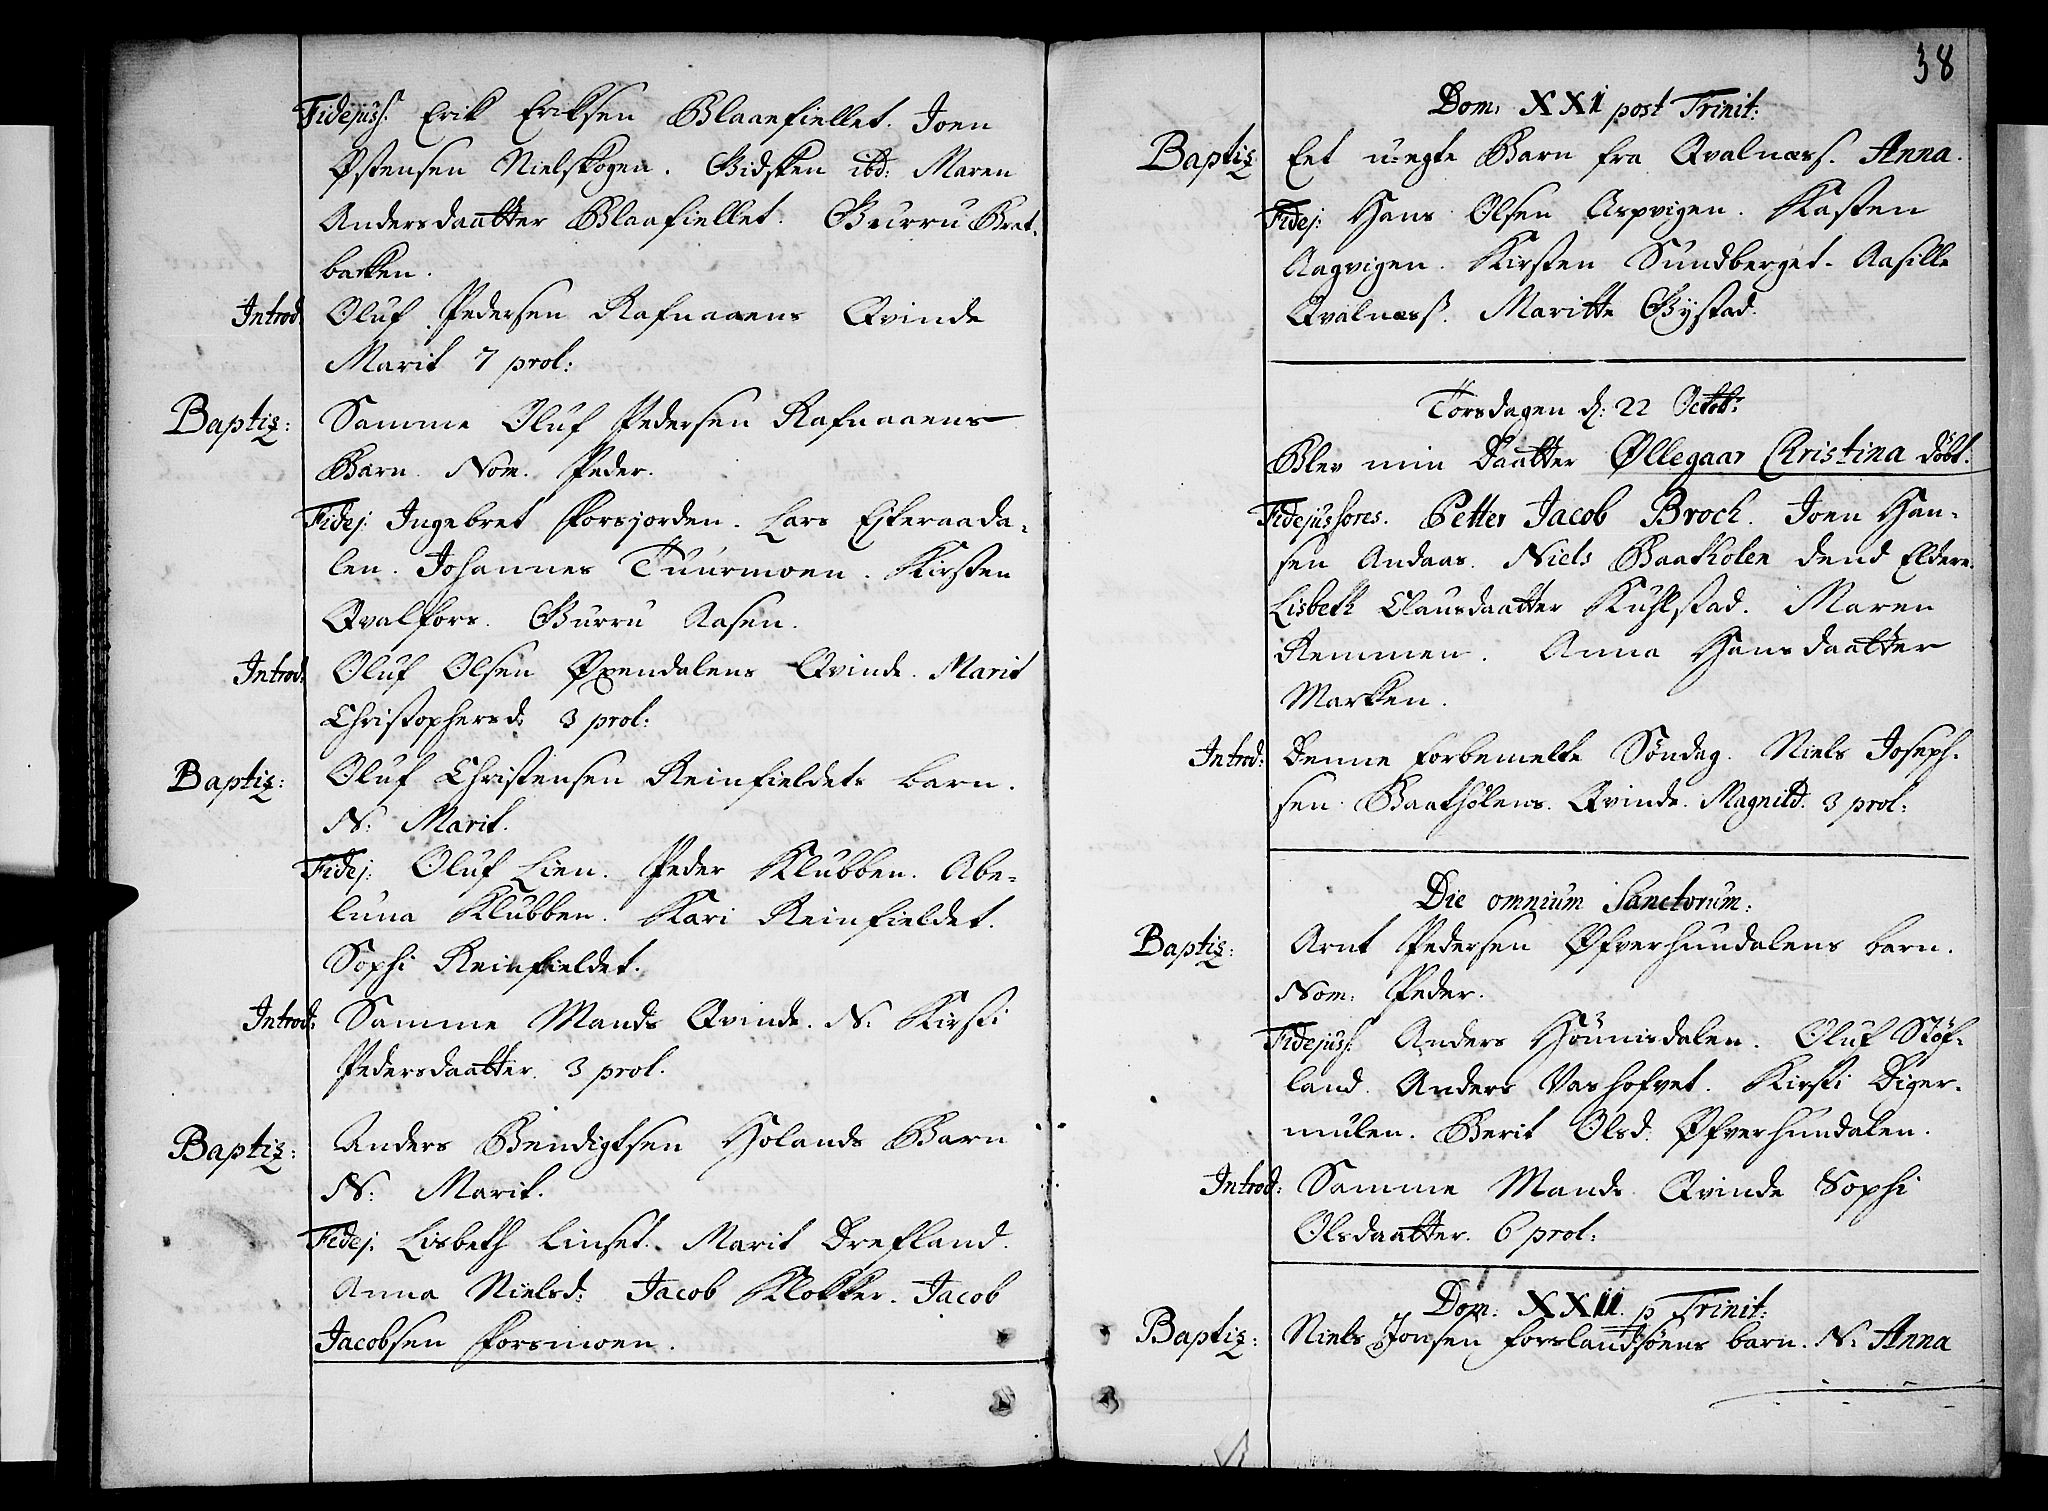 Fidejuss. Erik Eriksen Blaanefiellet. Joen
Østensen Nielskogen. Gidsken ibd: Maren
Andersdaatter Blaafiellet. Gurru Brat-
bakken.
Introd. Oluf Pedersen Rafnaaens Qvinde
Marit 7 prol:
Baptiz: Samme Oluf Pedersen Rafnaaens
Barn. Nom. Peder.
Fidej: Ingebret Forsjorden. Lars Eiteraada-
len. Johannes Tuurmoen. Kirsten
Qvalfors. Gurru Aasen.
Introd: Oluf Olsen Øxendalens Qvinde. Marit
Christophersd: 3 prol:
Baptiz: Oluf Christensen Reinfieldets barn.
N: Marit.
Fidej: Oluf Lien. Peder Klubben. Abe-
luna Klubben. Kari Reinfieldet.
Sophi Reinfieldet.
Introd: Samme Mands Qvinde. N: Kirsti
Pedersdaatter. 3 prol.
Baptiz: Anders Bendigtsen Holands Barn
N: Marit.
Fidej. Lisbeth Linset. Marit Drefland.
Anna Nielsd: Jacob Klokker. Jacob
Jacobsen Forsmoen.
38
Dom: XXI post Trinit:
Baptiz: Eet uægte Barn fra Qvalnæss. Anna.
Fidej: Hans Olsen Aspvigen. Kasten
Aagvigen. Kirsten Sundberget. Aasille
Qvalnæss. Maritte Gystad.
Torsdagen d: 22 Octobr:
Blev min Daatter Øllegaar Christina döbt.
Fidejussores. Petter Jacob Broch. Joen Han-
sen Andaas. Niels Baatholen dend Eldere.
Lisbeth Clausdaatter Kuhlstad. Maren
Remmen. Anna Hansdaatter
Marken.
Introd: Denne forbemelte Söndag. Niels Joseph-
sen Baatholens Qvinde. Magnild. 3 prol:
Die omnium Sanctorum:
Baptiz: Arnt Pedersen Øfverhundalens barn.
Nom: Peder.
Fidejuss. Anders Hounisdalen. Oluf Stöf-
land. Anders Vashofvet. Kirsti Diger-
mulen. Berit Olsd: Øfverhundalen.
Introd: Samme Mands Qvinde Sophi
Olsdaatter. 6 prol:
Dom: XXII p Trinit:
Baptiz: Niels Jonsen Forslandsöens barn. N: Anna